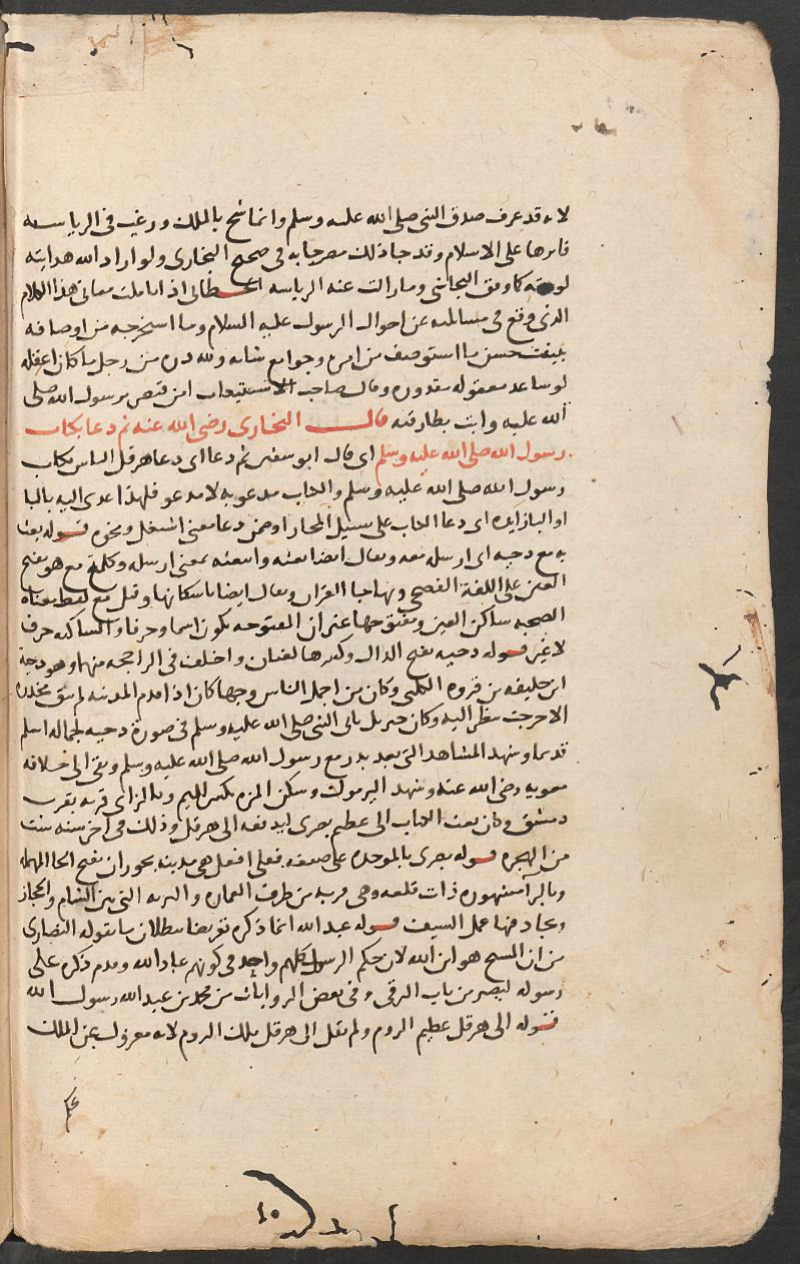 لانه قد عرف صدق النبى صلى الله عليه وسلم وانما شح بالملك ورغب فى الرياسه
فاثرها على الاسلام وقد جا ذلك مصرحا به فى صحيح البخارى ولو اراد الله هدايته
لوفقه كما وفق النجاشى وما زالت عنه الرياسه الخطابى اذا تاملت معانى هذا الكلام
الذى وقع فى مسالته عن احوال الرسول عليه السلام وما استخرجه من اوصافه
تبينت حسن ما استوصف من امره وجوامع شانه ولله دره من رجل ما كان اعقله
لو ساعد معقوله مقدوره وقال صاحب الاستيعاب امن قيصر برسول الله صلى
الله عليه وابت بطارقته قال البخارى رضى الله عنه ثم دعا بكتاب
رسول الله صلى الله عليه وسلم اى قال ابو سفين ثم دعا اى دعا هرقل الناس بكتاب
رسول الله صلى الله عليه وسلم والكتاب مدعو به لا مدعو فلهذا عدى اليه بالبا
او البا زايده اى دعا الكتاب على سبيل المجاز او ضمن دعا معنى اشتغل ونحوه قوله بعث
به مع دحيه اى ارسله معه ويقال ايضا بعثه وابتعثه بمعنى ارسله وكلمة مع هو بفتح
العين على اللغة الفصحى وبها جا القران ويقال ايضا باسكانها وقيل مع لفظ معناه
الصحبه ساكن العين ومفتوحها غير ان المفتوحه يكون اسما وحرفا والساكنه حرف
لا غير قوله دحيه بفتح الدال وكسرها لغتان واختلف فى الراجحه منهما وهو دحية
ابن خليفه بن فروه الكلبى وكان من اجمل الناس وجها كان اذا قدم المدينه لم تبق مخدره
الا خرجت تنظر اليه وكان جبريل ياتى النبى صلى الله عليه وسلم فى صورة دحيه لجماله اسلم
قديما وشهد المشاهد التى بعد بدر مع رسول الله صلى الله عليه وسلم وبقى الى خلافه
معويه رضى الله عنه وشهد اليرموك وسكن المزه بكسر الميم وبالزاى قريه بقرب
دمشق وكان بعث الكتاب الى عظيم بصرى ليدفعه الى هرقل وذلك فى اخر سنه ست
من الهجره قوله بصرى بالموحده على صيغه فعلى افعل هى مدينه بحوران بفتح الحا المهمله
وبالرا مشهوره ذات قلعه وهى قريبه من طرف العماره والبريه التى بين الشام والحجاز
وبجاد منها عمل السيف قوله عبد الله انما ذكره تعريضا ببطلان ما تقوله النصارى
من ان المسيح هو ابن الله لان حكم الرسل كلهم واحد فى كونهم عباد الله وقدم ذكره على
رسوله ليصير من باب الترقى وفى بعض الروايات من محمد بن عبد الله رسول الله
قوله الى هرقل عظيم الروم ولم يقل الى هرقل ملك الروم لانه معزول عن الملك